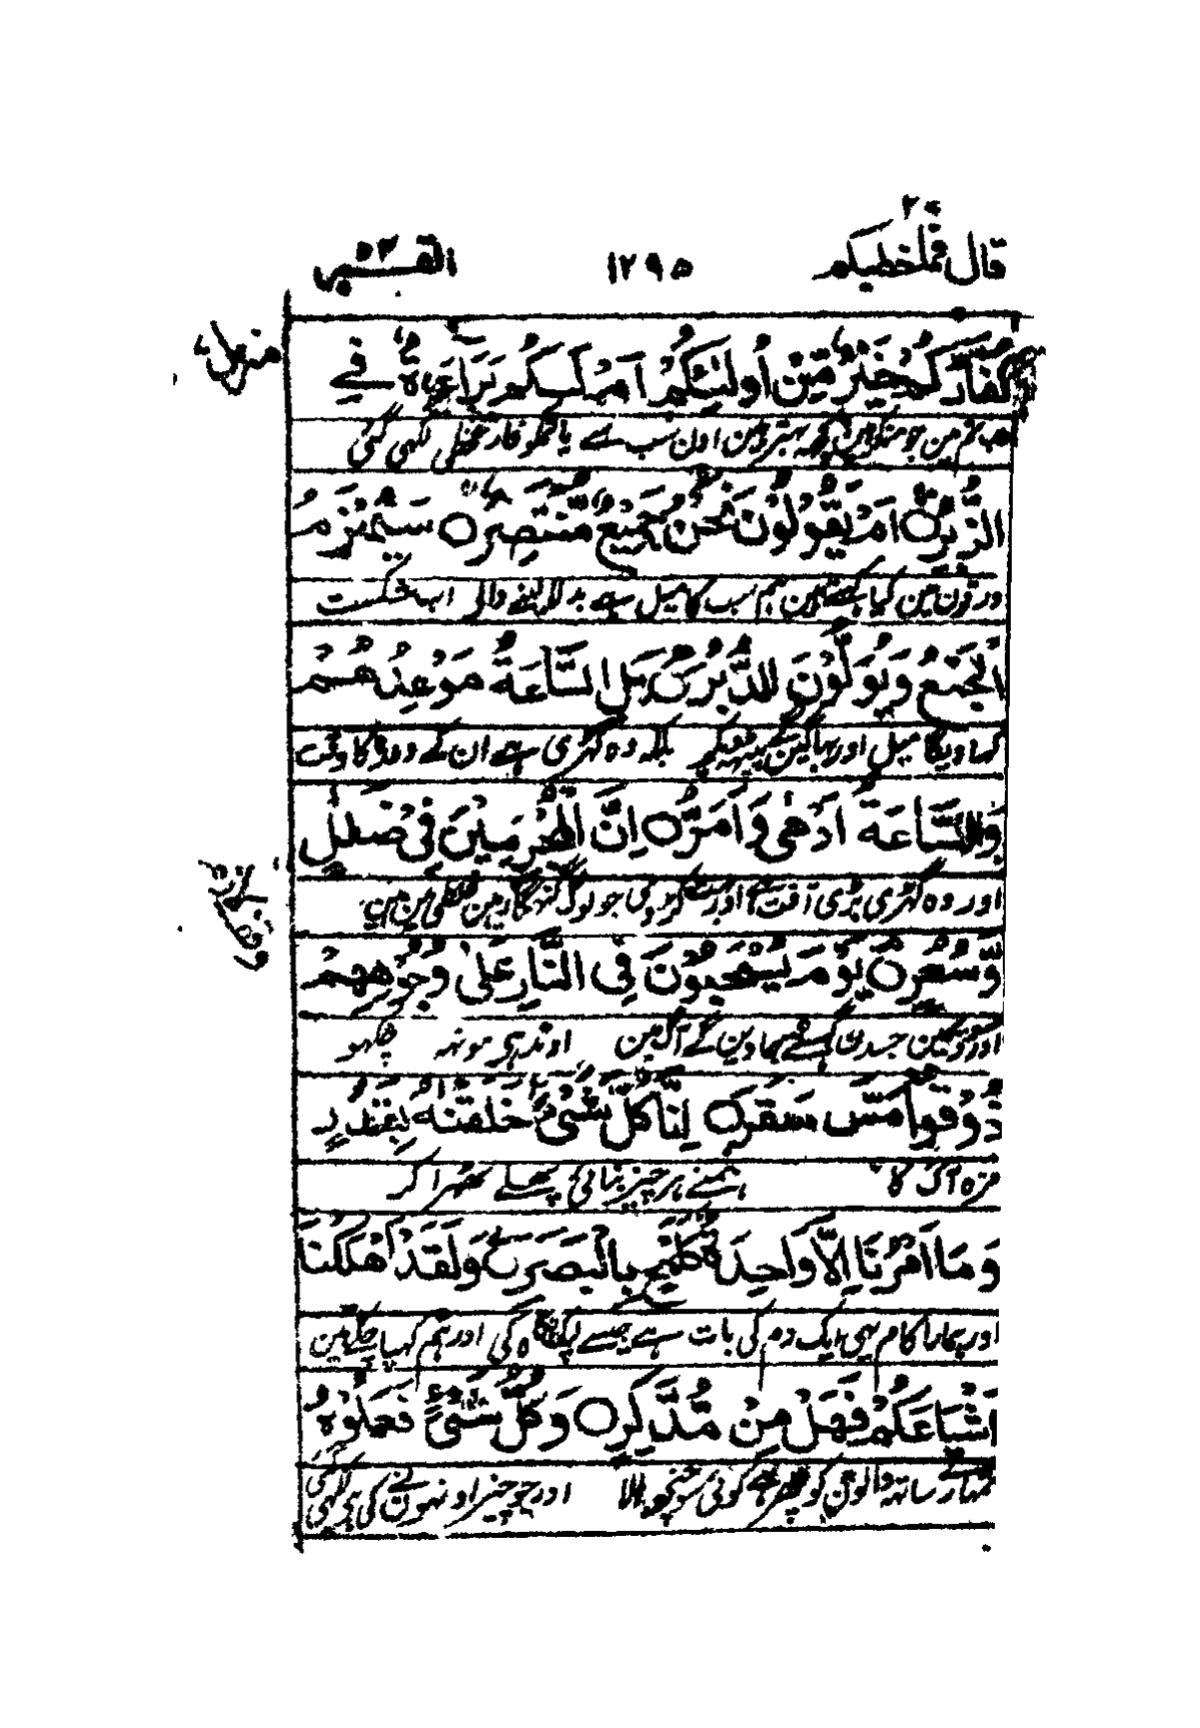 قال فماخطبكم ٢٧
١٢٩٥
القمر ٥٤
منزل
اَكُفَّارُكُمْ خَيْرٌ مِّنْ اُولٰٓئِكُمْ اَمْ لَكُمْ بَرَآءَةٌ فِي
اب تم مین جو منکر ہین کچھ بہتر ہین اون سب سے یا تمکو فارغ خطی لکھی گئی
الزُّبُرِ ○ اَمْ يَقُوْلُوْنَ نَحْنُ جَمِيْعٌ مُّنْتَصِرٌ ○ سَيُهْزَمُ
ورقون مین کیا کہتے ہین ہم سب کا میل ہے بدلا لینے والی اب شکست
الْجَمْعُ وَيُوَلُّوْنَ الدُّبُرَ ○ بَلِ السَّاعَةُ مَوْعِدُهُمْ
کھاویگا میل اور بھاگین گے پیٹھ دیکر بلکہ وہ گھڑی ہے ان کے وعدہ کا وقت
وَالسَّاعَةُ اَدْهٰى وَاَمَرُّ ○ اِنَّ الْمُجْرِمِيْنَ فِيْ ضَلٰلٍ
اور وہ گھڑی بڑی آفت ہے اور بہت کڑوی جو لوگ گنہگار ہین غلطی مین ہین
وَّسُعُرٍ ○ يَوْمَ يُسْحَبُوْنَ فِي النَّارِ عَلٰى وُجُوْهِهِمْ
اور سودا مین جسدن گھسیٹے جاوین گے آگ مین اوندہی مونہہ چکہو
ذُوْقُوْا مَسَّ سَقَرَ ○ اِنَّا كُلَّ شَيْءٍ خَلَقْنٰهُ بِقَدَرٍ
مزہ آگ کا ہمنے ہر چیز بنائی پہلے ٹھہرا کر
وَمَا اَمْرُنَا اِلَّا وَاحِدَةٌ كَلَمْحٍ بِالْبَصَرِ ○ وَلَقَدْ اَهْلَكْنَا
اور ہمارا کام یہی ایک دم کی بات ہے جیسے لپک نگاہ کی اور ہم کھپا چکے ہین
اَشْيَاعَكُمْ فَهَلْ مِنْ مُّدَّكِرٍ ○ وَكُلُّ شَيْءٍ فَعَلُوْهُ
تمہارے ساتھ والون کو پھر ہے کوئی سوچنے والا اور جو چیز اونہون نے کی ہے لکھی